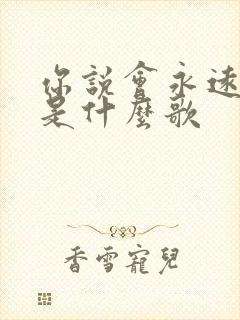 你說會永遠
是什麼歌
香雪寵兒